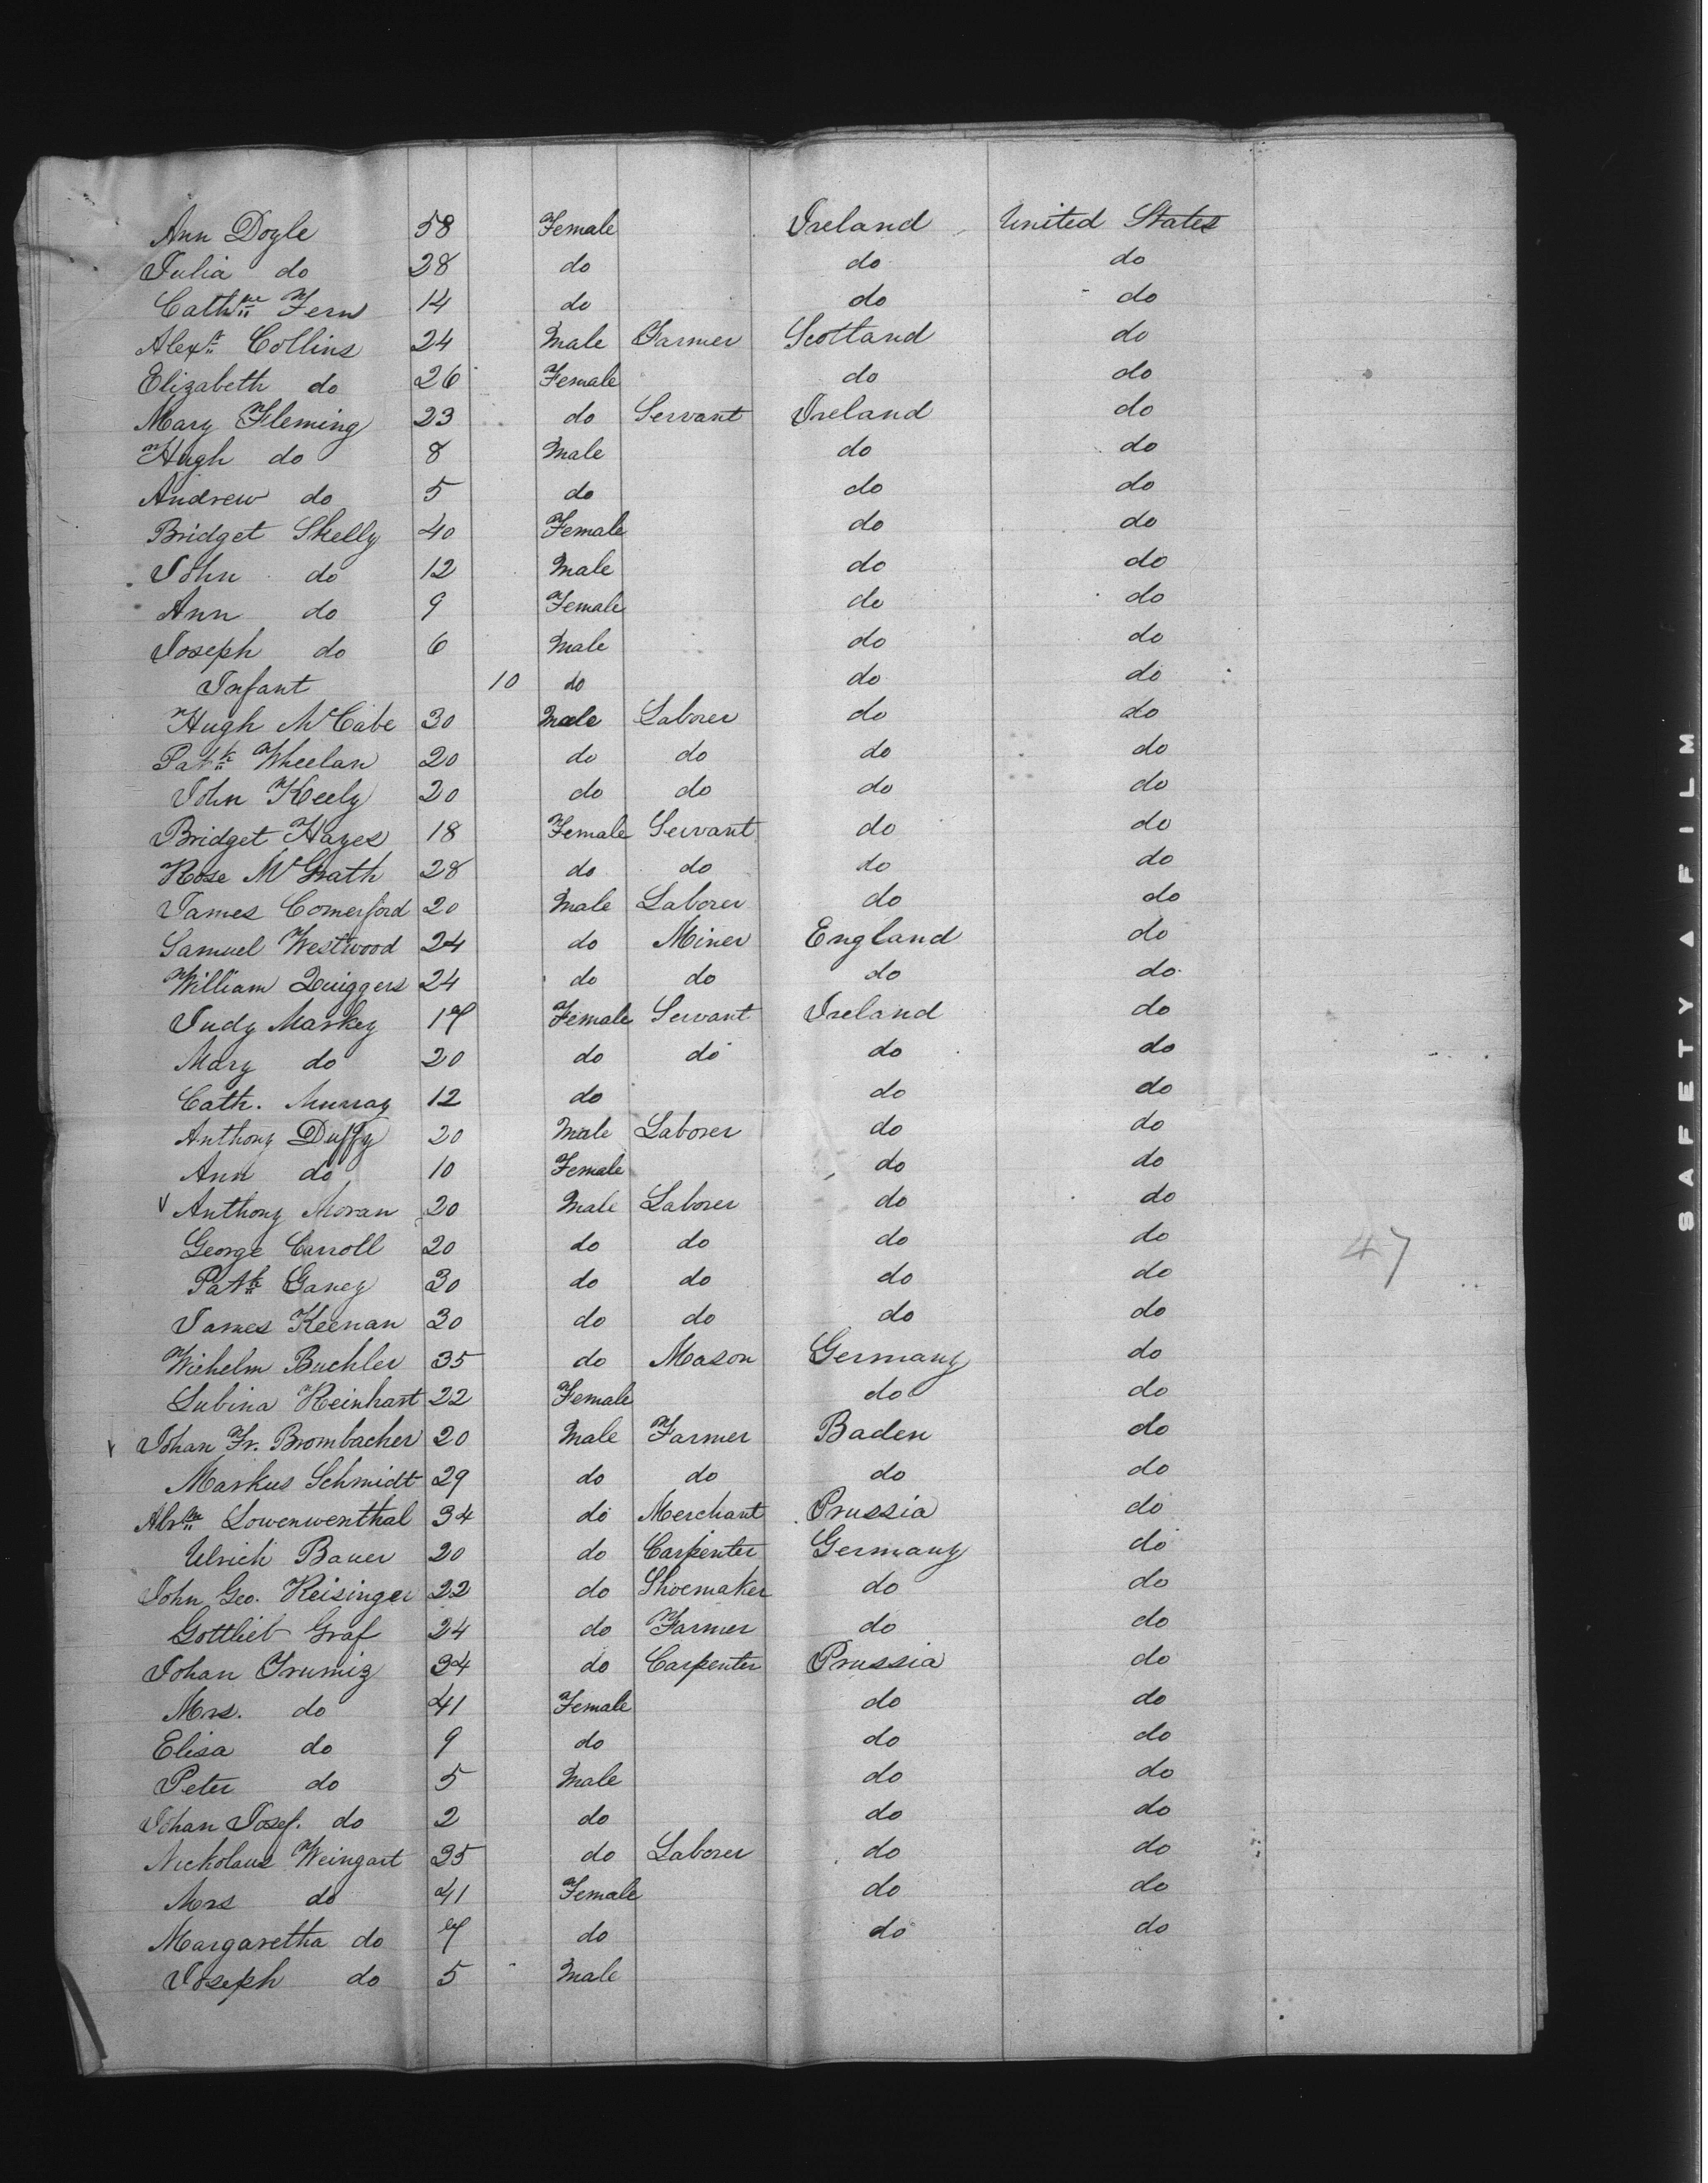 Ann Doyle 58 Female Ireland United States
Julia do 28 do do do
Cathne Fern 14 do do do
Alexr Collins 24 Male Farmer Scotland do
Elizabeth do 26 Female do do
Mary Fleming 23 do Servant Ireland do
Hugh do 8 Male do do
Andrew do 5 do do do
Bridget Skelly 40 Female do do
John do 12 Male do do
Ann do 9 Female do do
Joseph do 6 Male do do
Infant 10 do do do
Hugh McCabe 30 Male Laborer do do
Patk Wheelan 20 do do do do
John Keely 20 do do do do
Bridget Hayes 18 Female Servant do do
Rose McGrath 28 do do do do
James Comerford 20 Male Laborer do do
Samuel Westwood 24 do Miner England do
William Quiggers 24 do do do do
Judy Markey 17 Female Servant Ireland do
Mary do 20 do do do do
Cath. Murray 12 do do do
Anthony Duffy 20 Male Laborer do do
Ann do 10 Female do do
Anthony Moran 20 Male Laborer do do
George Carroll 20 do do do do
47
Patk Ganey 30 do do do do
James Keenan 30 do do do do
Wiehelm Buchler 35 do Mason Germany do
Lubina Reinhart 22 Female do do
Johan Fr. Brombacher 20 Male Farmer Baden do
Markus Schmidt 29 do do do do
Abrm Lowenwenthal 34 do Merchant Prussia do
Ulrich Bauer 20 do Carpenter Germany do
John Geo. Reisinger 22 do Shoemaker do do
Gottlieb Graf 24 do Farmer do do
Johan 34 do Carpenter Prussia do
Mrs. do 41 Female do do
Elisa do 9 do do do
Peter do 5 Male do do
Johan Josef. do 2 do do do
Nickolaus Weingart 35 do Laborer do do
Mrs do 41 Female do do
Margaretha do 7 do do do
Joseph do 5 Male
SAFETY FILM